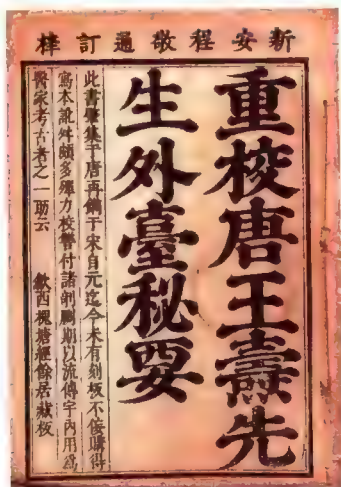 新安程敬通訂梓
重校唐王壽先
生外臺秘要
此書肇集于唐再鐫于宋自元迄今未有刻板不佞購得
寫本訛舛頗多殫力校讐付諸剞劂期以流傳宇內用爲
醫家考古者之一助云　歙西槐塘經餘居藏板